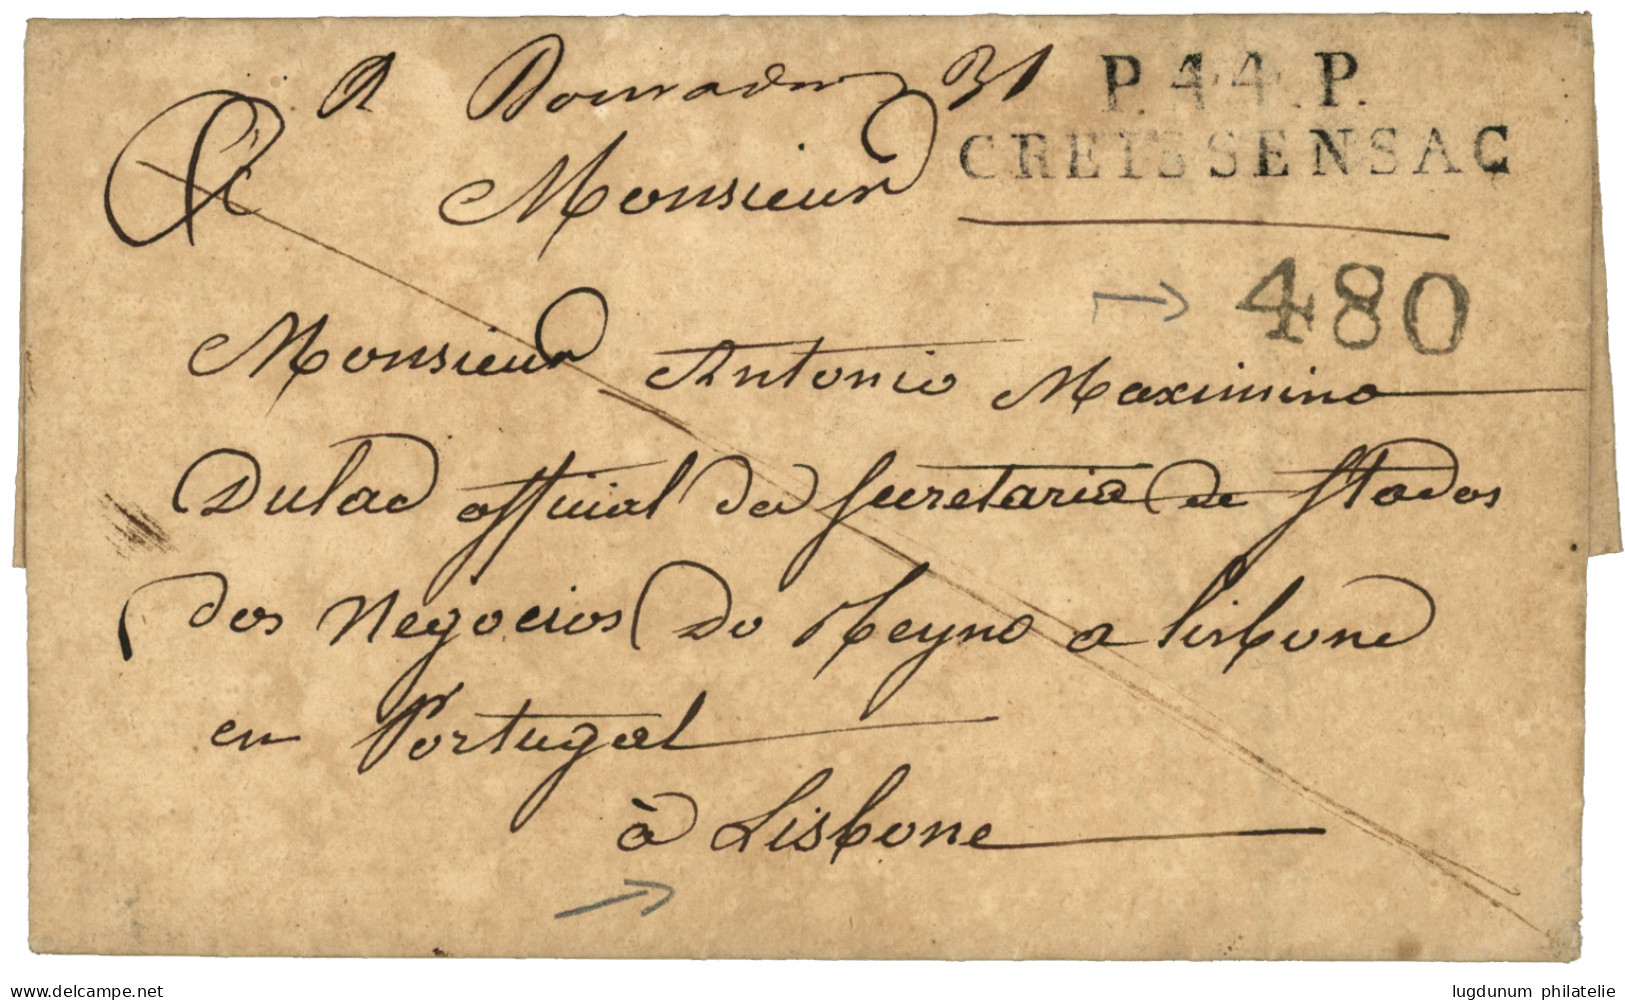 P.44.P.
CREISSENSAC
Monsieur
480
Monsieur Antonio Maximino
Dulac official da Secretaria de Stados
dos Negocios do Reyno a Lisbone
en Portugal
à Lisbone
delcampe.net
lugdunum philatelie